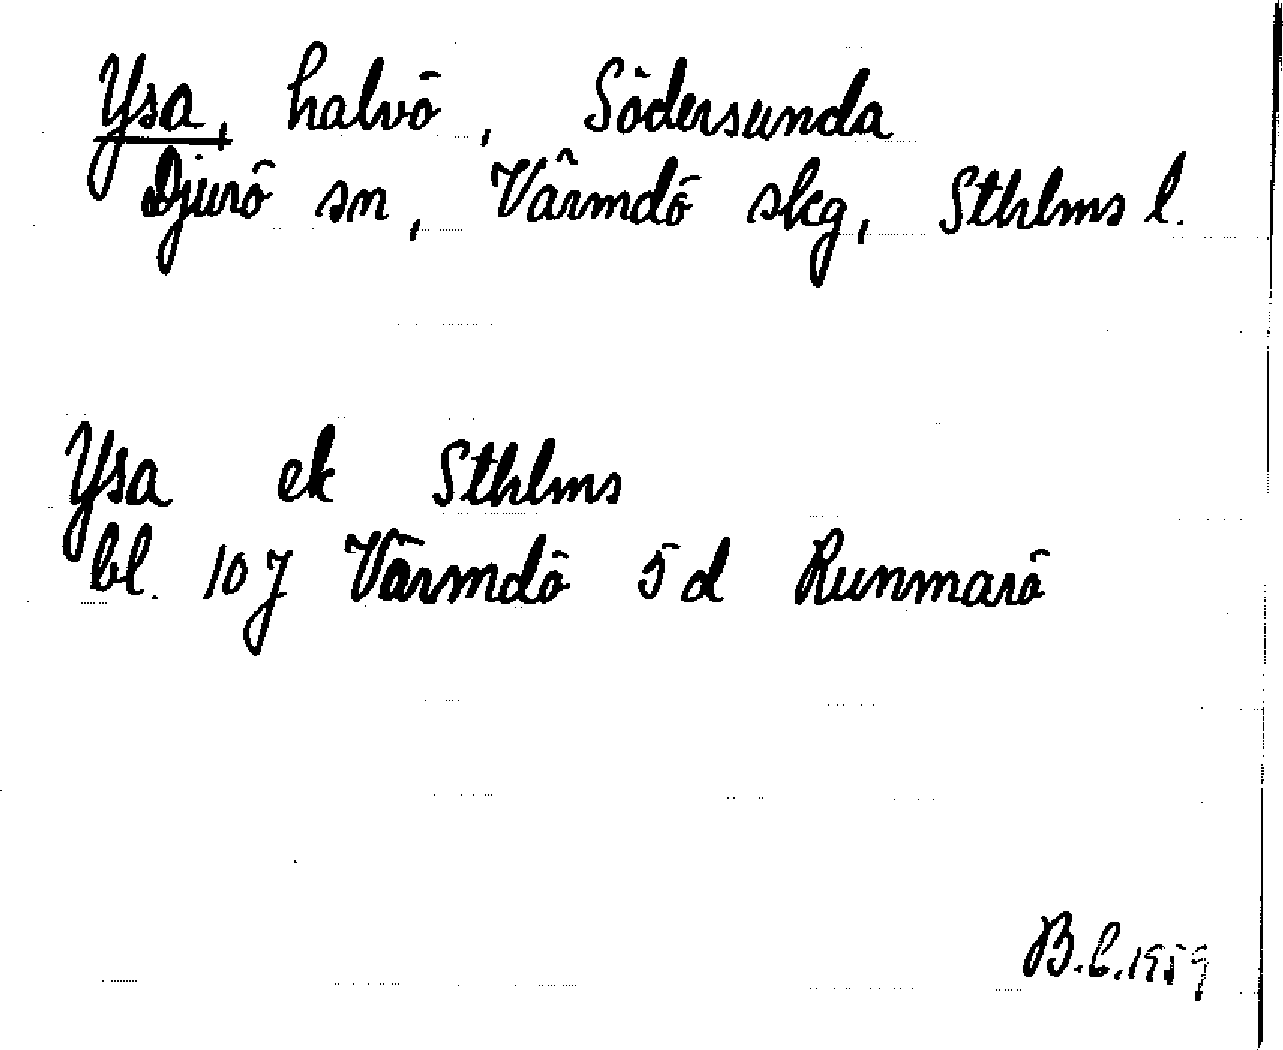 Ysa, halvö, Södersunda
Djurö sn, Värmdö skg, Sthlms l.
Ysa ek Sthlms
bl. 10 J Värmdö 5 d Runmarö
B.C. 1959